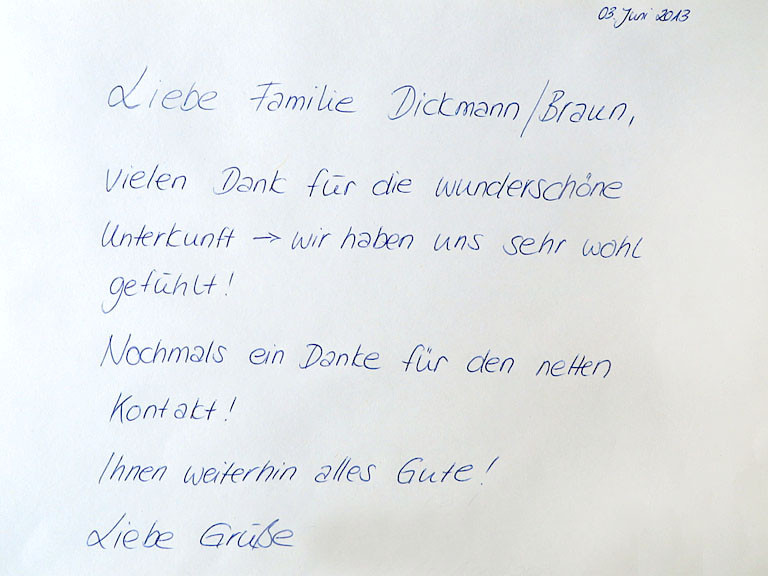 03. Juni 2013
Liebe Familie Dickmann/Braun,
vielen Dank für die wunderschöne
Unterkunft → wir haben uns sehr wohl
gefühlt!
Nochmals ein Danke für den netten
Kontakt!
Ihnen weiterhin alles Gute!
Liebe Grüße